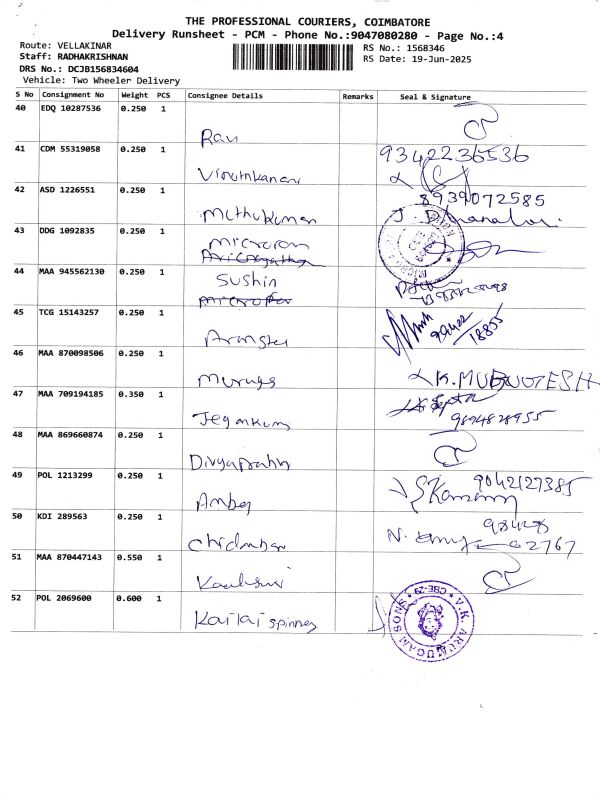 THE PROFESSIONAL COURIERS, COIMBATORE
Delivery Runsheet - PCM - Phone No.:9047080280 - Page No.:4
Route: VELLAKINAR
RS No.: 1568346
Staff: RADHAKRISHNAN
RS Date: 19-Jun-2025
DRS No.: DCJB156834604
Vehicle: Two Wheeler Delivery
S No Consignment No Weight PCS Consignee Details Remarks Seal & Signature
40 EDQ 10287536 0.250 1
Ravi
41 CDM 55319058 0.250 1 9342236536
42 ASD 1226551 0.250 1 8939072585
Muthukumar
43 DDG 1092835 0.250 1
Micron
44 MAA 945562130 0.250 1 Sushin
45 TCG 15143257 0.250 1
99422
18855
46 MAA 870098506 0.250 1
Muruga
47 MAA 709194185 0.350 1
Jegankum 9894828955
48 MAA 869660874 0.250 1
Divyaprabha
49 POL 1213299 0.250 1 9042127385
50 KDI 289563 0.250 1 98428
02767
Chidambar
51 MAA 870447143 0.550 1
52 POL 2069600 0.600 1 V.K. ARUMUGAM SONS CBE-29
Kailai spinney